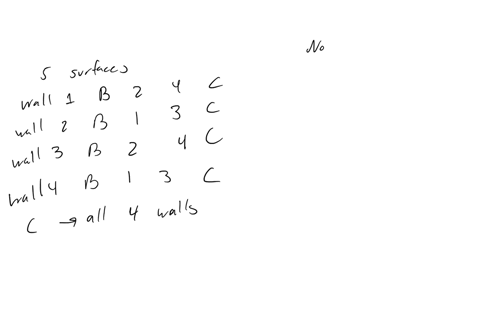 No
5 surfaces
wall 1 B 2 4 C
wall 2 B 1 3 C
wall 3 B 2 4 C
wall 4 B 1 3 C
C → all 4 walls